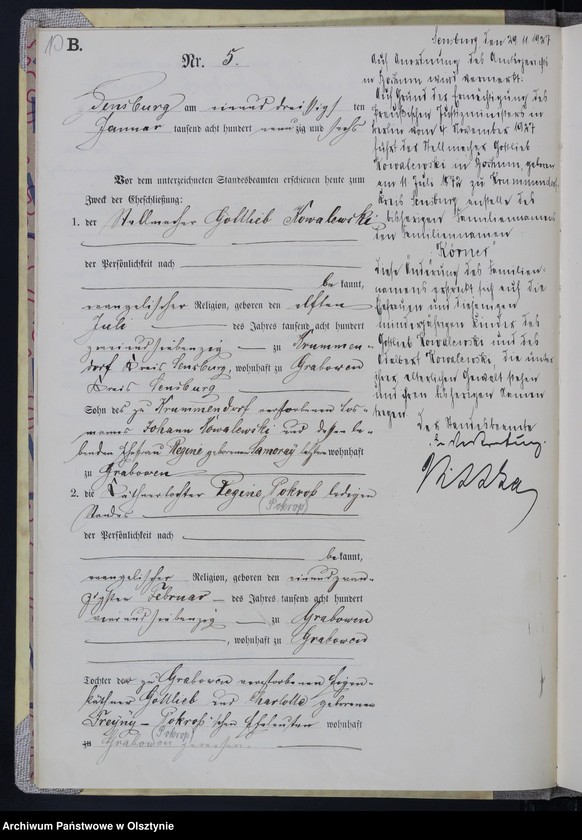 10 B.
Nr. 5.
Sensburg am einunddreißigs ten
Januar tausend acht hundert neunzig und sechs
Vor dem unterzeichneten Standesbeamten erschienen heute zum
Zweck der Eheschließung:
1. der Stellmacher Gottlieb Kowalewski
der Persönlichkeit nach
be kannt,
evangelischer Religion, geboren den elften
Juli des Jahres tausend acht hundert
zweiundsiebenzig zu Krummen-
dorf Kreis Sensburg, wohnhaft zu Grabowen
Kreis Sensburg
Sohn des zu Krummendorf verstorbenen Los-
manns Johann Kowalewski und dessen le-
benden Ehefrau Regine geborenen Samorey wohnhaft
zu Grabowen
2. die Käthnertochter Regine Pokrop ledigen
Standes (Pokrop)
der Persönlichkeit nach
be kannt,
evangelischer Religion, geboren den einundzwan-
zigsten Februar des Jahres tausend acht hundert
vierundsiebenzig zu Grabowen
, wohnhaft zu Grabowen
Tochter der zu Grabowen verstorbenen Eigen-
käthner Gottlieb und Charlotte geborenen
Pokrop'schen Eheleuten wohnhaft
(Pokrop)
zu Grabowen gewesen.
Sensburg den 29.11.1927
Auf Anordnung des Amtsgerichts
in Bochum wird vermerkt:
Auf Grund der Ermächtigung des
Preußischen Justizministers in
Berlin vom 4 November 1927
führt der Stellmacher Gottlieb
Kowalewski in Bochum, geboren
am 11 Juli 1872 zu Krummendorf,
Kreis Sensburg anstelle des
bisherigen Familiennamens
den Familiennamen
"Körner"
Diese Änderung des Familien-
namens erstreckt sich auf die
Ehefrau und diejenigen
minderjährigen Kinder des
Gottlieb Kowalewski und des
Kowalewski die unter
ihrer elterlichen Gewalt stehen
und ihren bisherigen Namen
tragen.
Der Standesbeamte
In Vertretung.
Archiwum Państwowe w Olsztynie